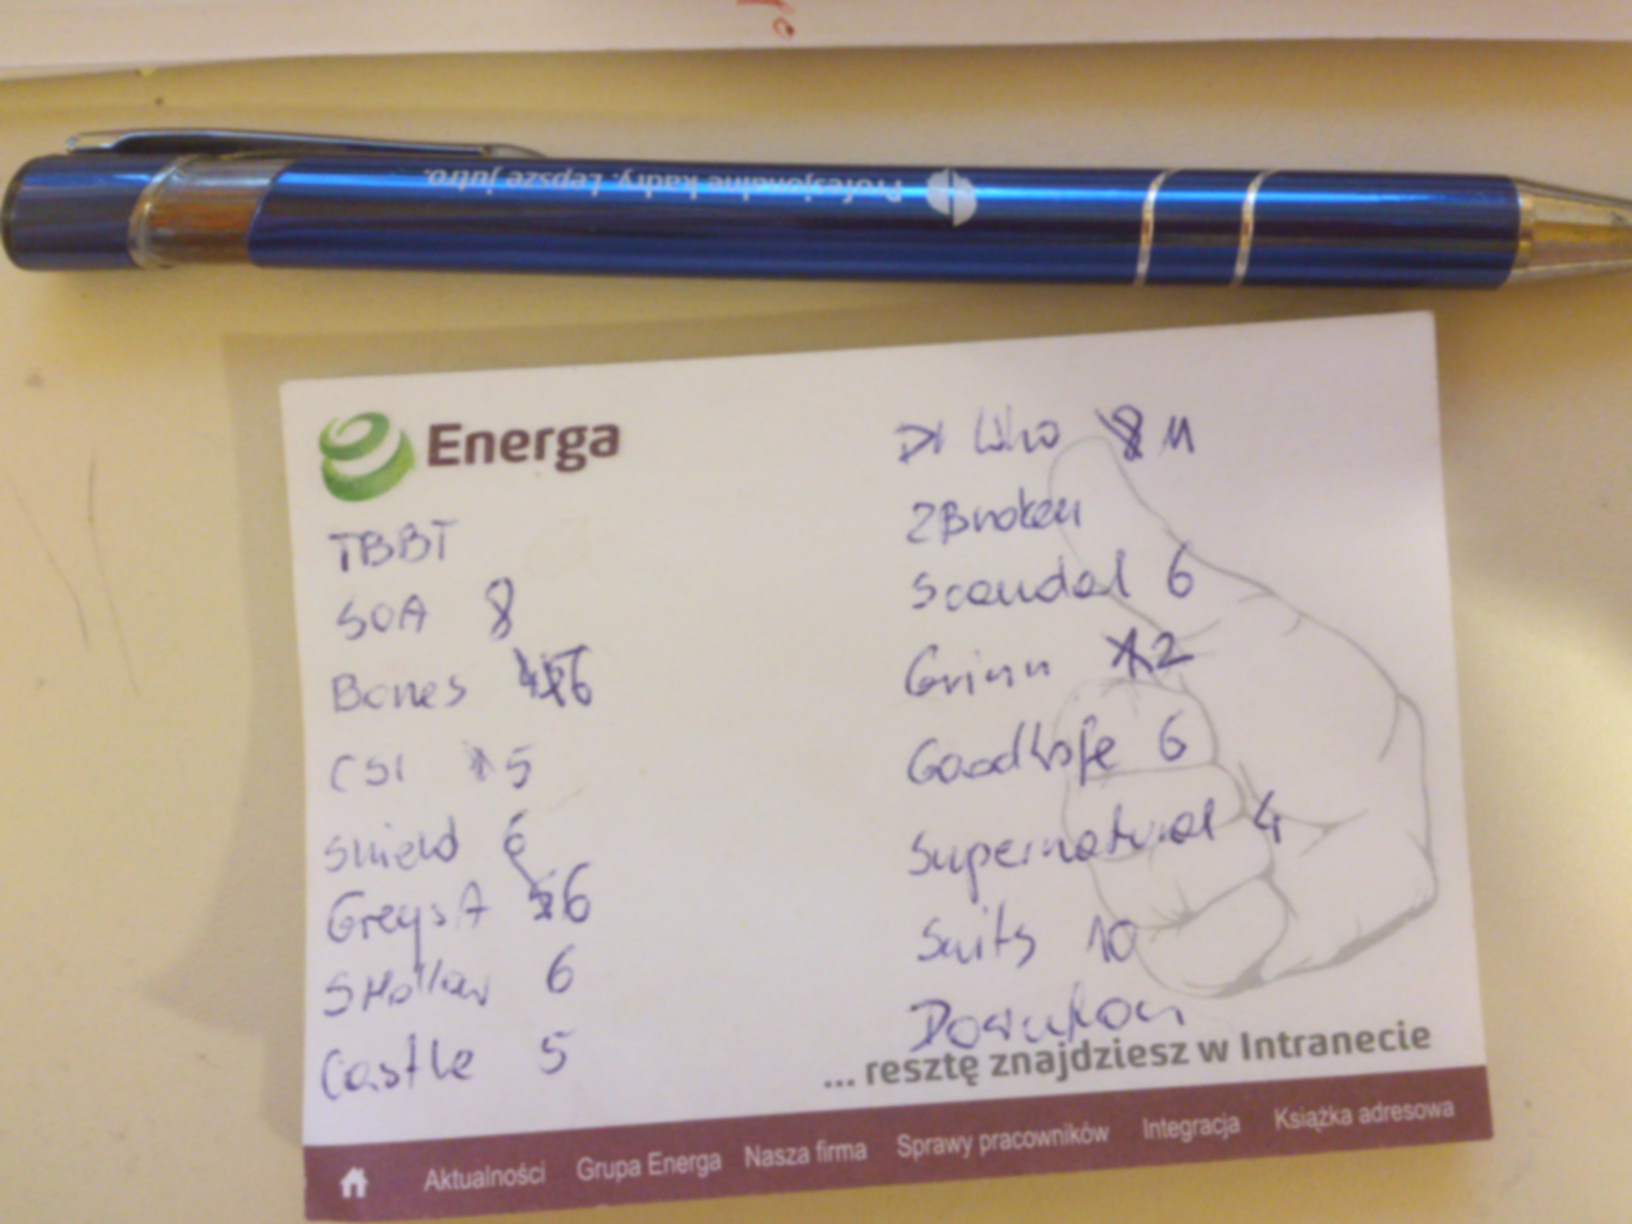 Profesjonalne kadry. Lepsze jutro.
Energa
TBBT
SOA 8
Bones 6
CSI 5
Shield 6
Greys A 6
SHollow 6
Castle 5
Dr Who 8 11
2Broken
Scandal 6
Grimm 2
GoodWife 6
Supernatural 4
Suits 10
Downton
... resztę znajdziesz w Intranecie
Aktualności Grupa Energa Nasza firma Sprawy pracowników Integracja Książka adresowa